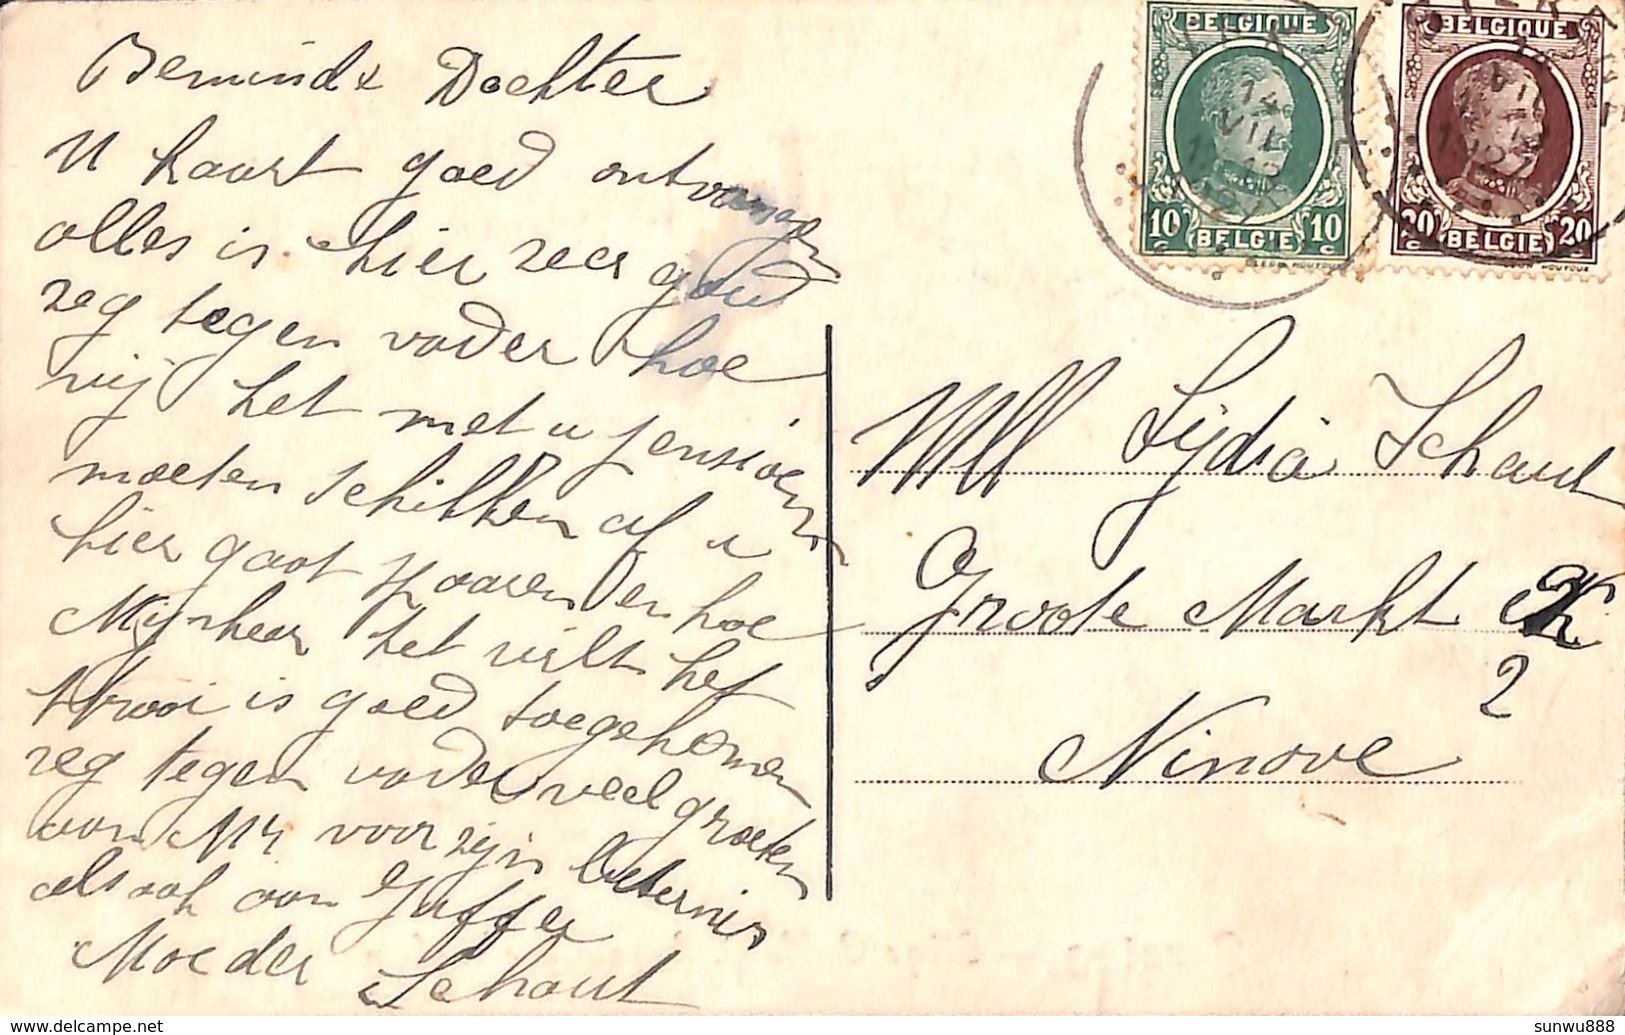 Beminde Dochter
U kaart goed ontvangen
alles is hier zeer goed
zeg tegen vader hoe
wij het met u pensioen
moeten schikken af u
hier gaat spaaren en hoe
Mijnheer het wilt het
strooi is goed toegekomen
zeg tegen vader veel groeten
van Mr voor zijn beternis
als ook van Juffer
Moeder Schout
BELGIQUE
10 10
BELGIË
BELGIQUE
20 20
BELGIË
14
VII
Mll Lydia Schaut
Groote Markt
2
Ninove
delcampe.net
sunwu888